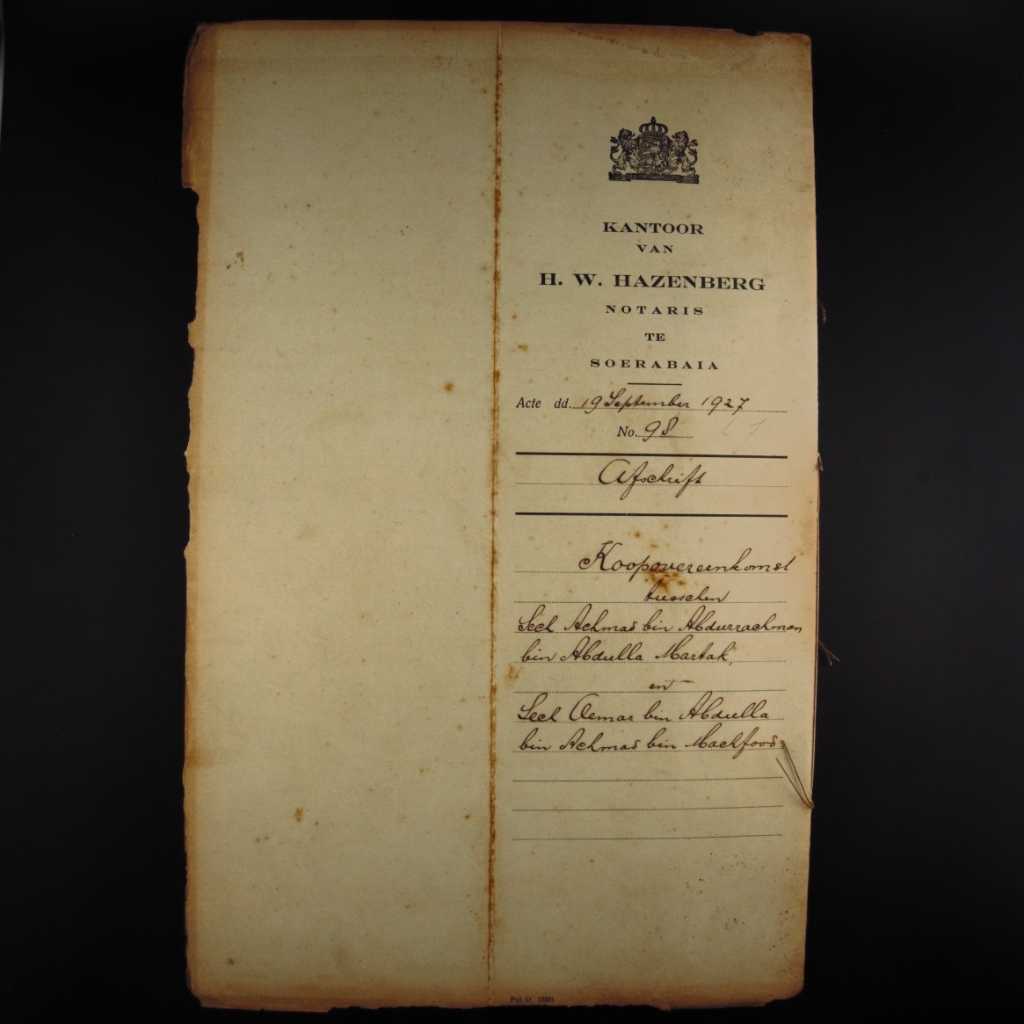 KANTOOR
VAN
H. W. HAZENBERG
NOTARIS
TE
SOERABAIA
Acte dd. 19 September 1927
No. 98
Afschrift
Koopovereenkomst
tusschen
Sech Achmad bin Abdurrachman
bin Abdulla Martak,
en
Sech Oemar bin Abdulla
bin Achmad bin Machfood